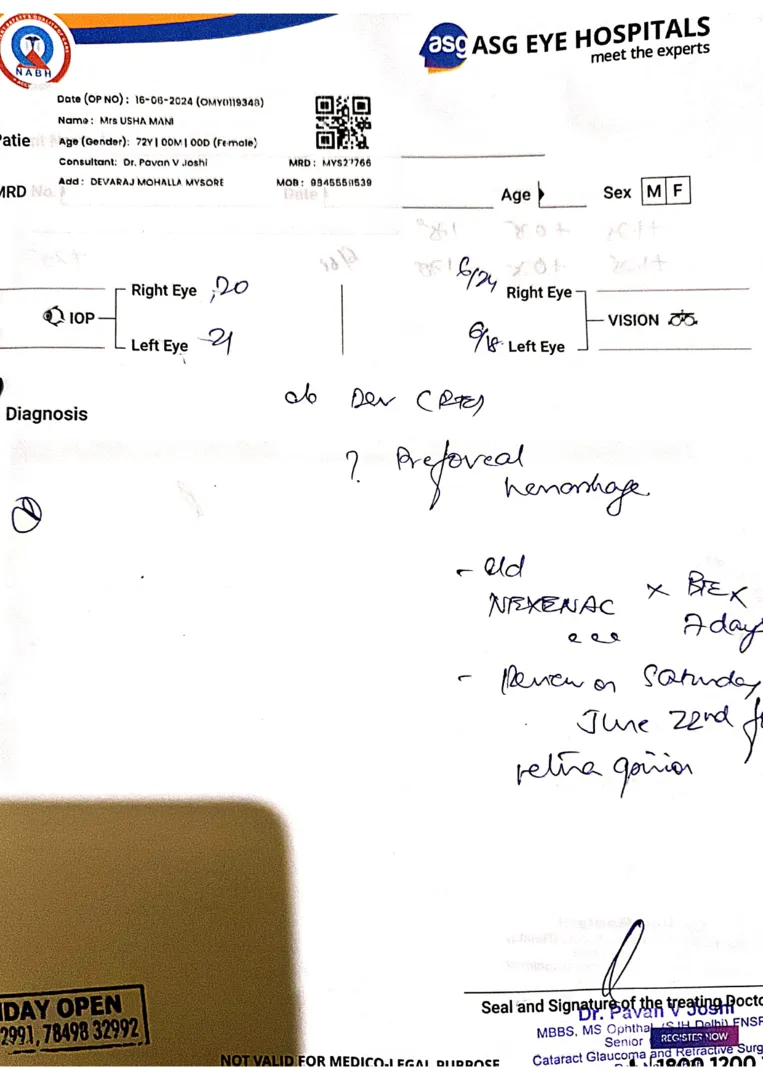 NABH
asg ASG EYE HOSPITALS
meet the experts
Date (OP NO) : 16-06-2024 (OMY0119348)
Name : Mrs USHA MANI
Patie
Age (Gender): 72Y | 00M | 00D (Female)
Consultant: Dr. Pavan V Joshi
Add : DEVARAJ MOHALLA MYSORE
MRD No.
Date
Age
Sex M F
IOP
Right Eye 20
Left Eye 21
6/24 Right Eye
6/18 Left Eye
VISION
Diagnosis
? Prefoveal
hemorrhage
- eld
NEXENAC x
7 day
- Review on Saturday
June 22nd
retina opinion
DAY OPEN
2991, 78498 32992
Seal and Signature of the treating Docto
Dr. Pavan V Joshi
MBBS, MS Ophthal
Senior
REGISTER NOW
Cataract Glaucoma and Refractive Surg
NOT VALID FOR MEDICO-LEGAL PURPOSE
1800 1200